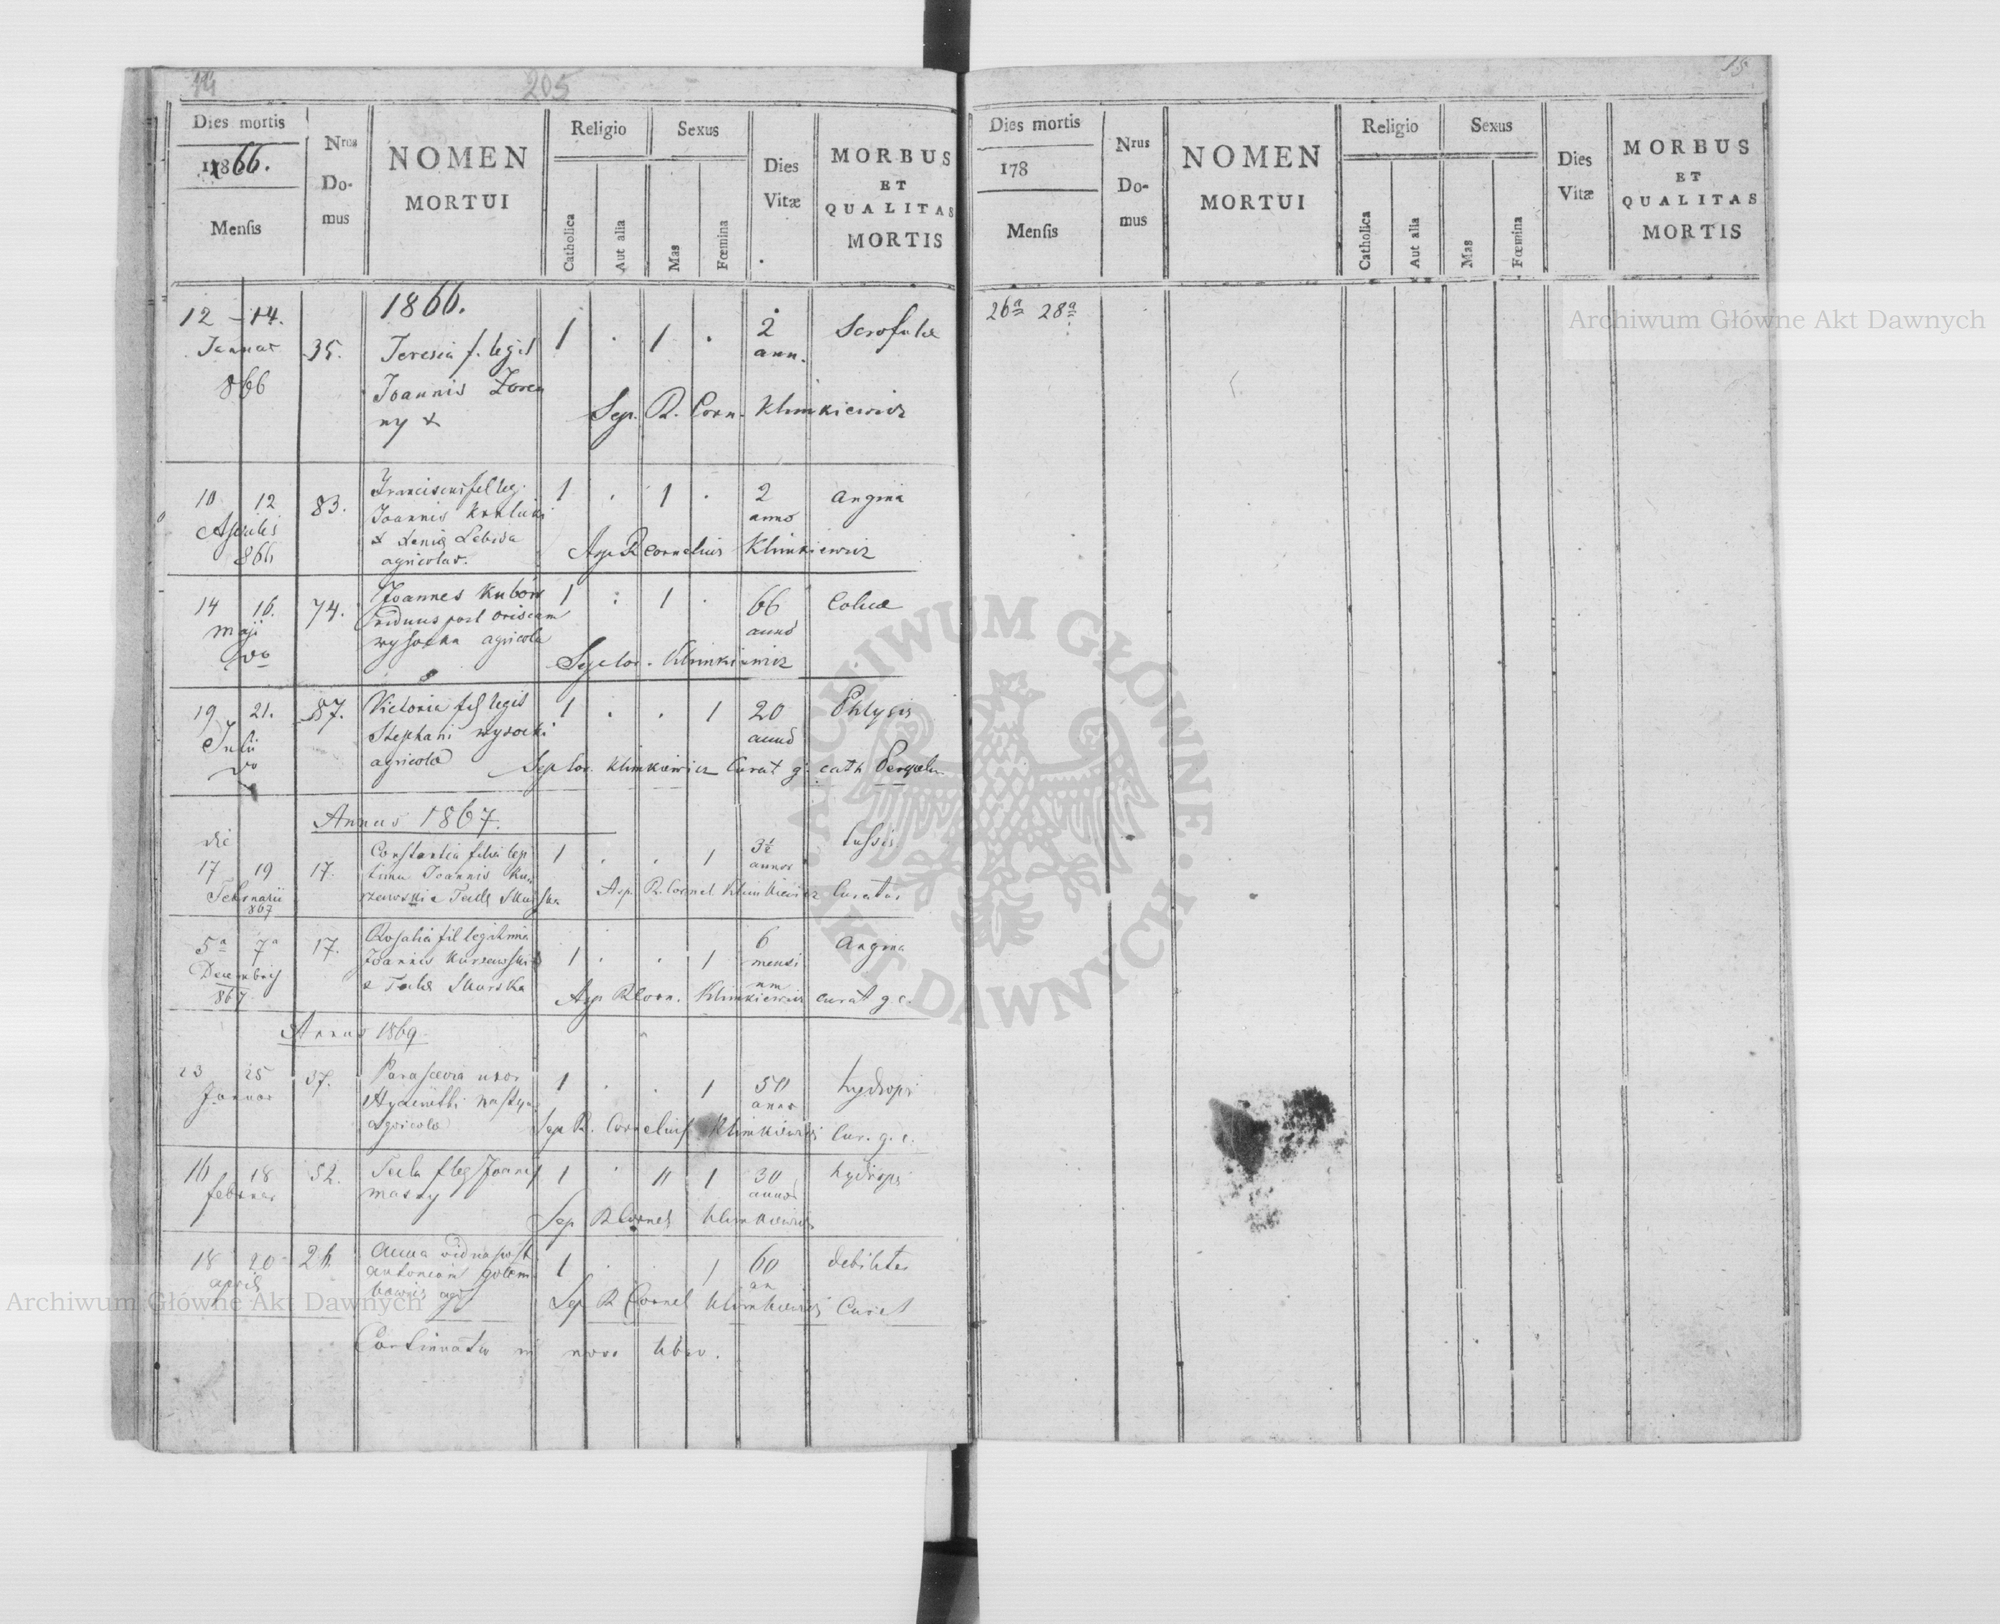 14
205
Dies mortis
1866.
Mensis
Nrus
Do-
mus
NOMEN
MORTUI
Religio
Catholica
Aut alia
Sexus
Mas
Fœmina
Dies
Vitæ
MORBUS
ET
QUALITAS
MORTIS
1866.
12 - 14.
Januar
866
35.
Teresia f. legit
Joannis
ny
1 . 1 .
2
ann.
Scrofulae
Sep. R. Corn. Klimkiewicz
10 12
Aprilis
866
83.
Franciscus fil leg.
Joannis
agricolar.
1 . 1 .
2
anno
Angina
Asp R Cornelius Klimkiewicz
14 16.
maji
74.
Joannes Kubow
viduus post
wysocka agricola
1 : 1 .
66
annor
Colica
Sep Cor. Klimkiewicz
19 21.
Julii
87.
Victoria fil legit
Stephani wysocki
agricola
1 . . 1
20
annor
Phtysis
Sep Cor. Klimkiewicz Curat g. cath
Annus 1867.
die
17 19
Februarii
867
17.
Constantia filia legi
tima Joannis Kur
zewski e Tecla Skurska
1 . . 1
3½
annor
tussis
Asp. R. Cornel Klimkiewicz Curatus
5a 7a
Decembris
867
17.
Rosalia fil legitima
Joannis Kurzewski
e Tecla Skurska
1 . . 1
6
mensi
um
Angina
Asp R Corn. Klimkiewicz curat g c.
Annus 1869
23 25
Januar
37.
Parascevia uxor
agricola
1 . . 1
50
annor
hydropi
Sep R. Cornelius Klimkiewicz Cur. g. c.
16 18
februar
52.
Tecla f leg Joannis
1 . 11 1
30
annor
hydrops
Sep R Cornel Klimkiewicz
18 20
april
26
Anna vidua post
antonium golem
1 . . 1
60
an
debilitas
Sep R Cornel Klimkiewicz Curat
Continuatio in novo libro.
15
Dies mortis
178
Mensis
Nrus
Do-
mus
NOMEN
MORTUI
Religio
Catholica
Aut alia
Sexus
Mas
Fœmina
Dies
Vitæ
MORBUS
ET
QUALITAS
MORTIS
26a 28a
Archiwum Główne Akt Dawnych
ARCHIWUM GŁÓWNE · AKT DAWNYCH ·
Archiwum Główne Akt Dawnych